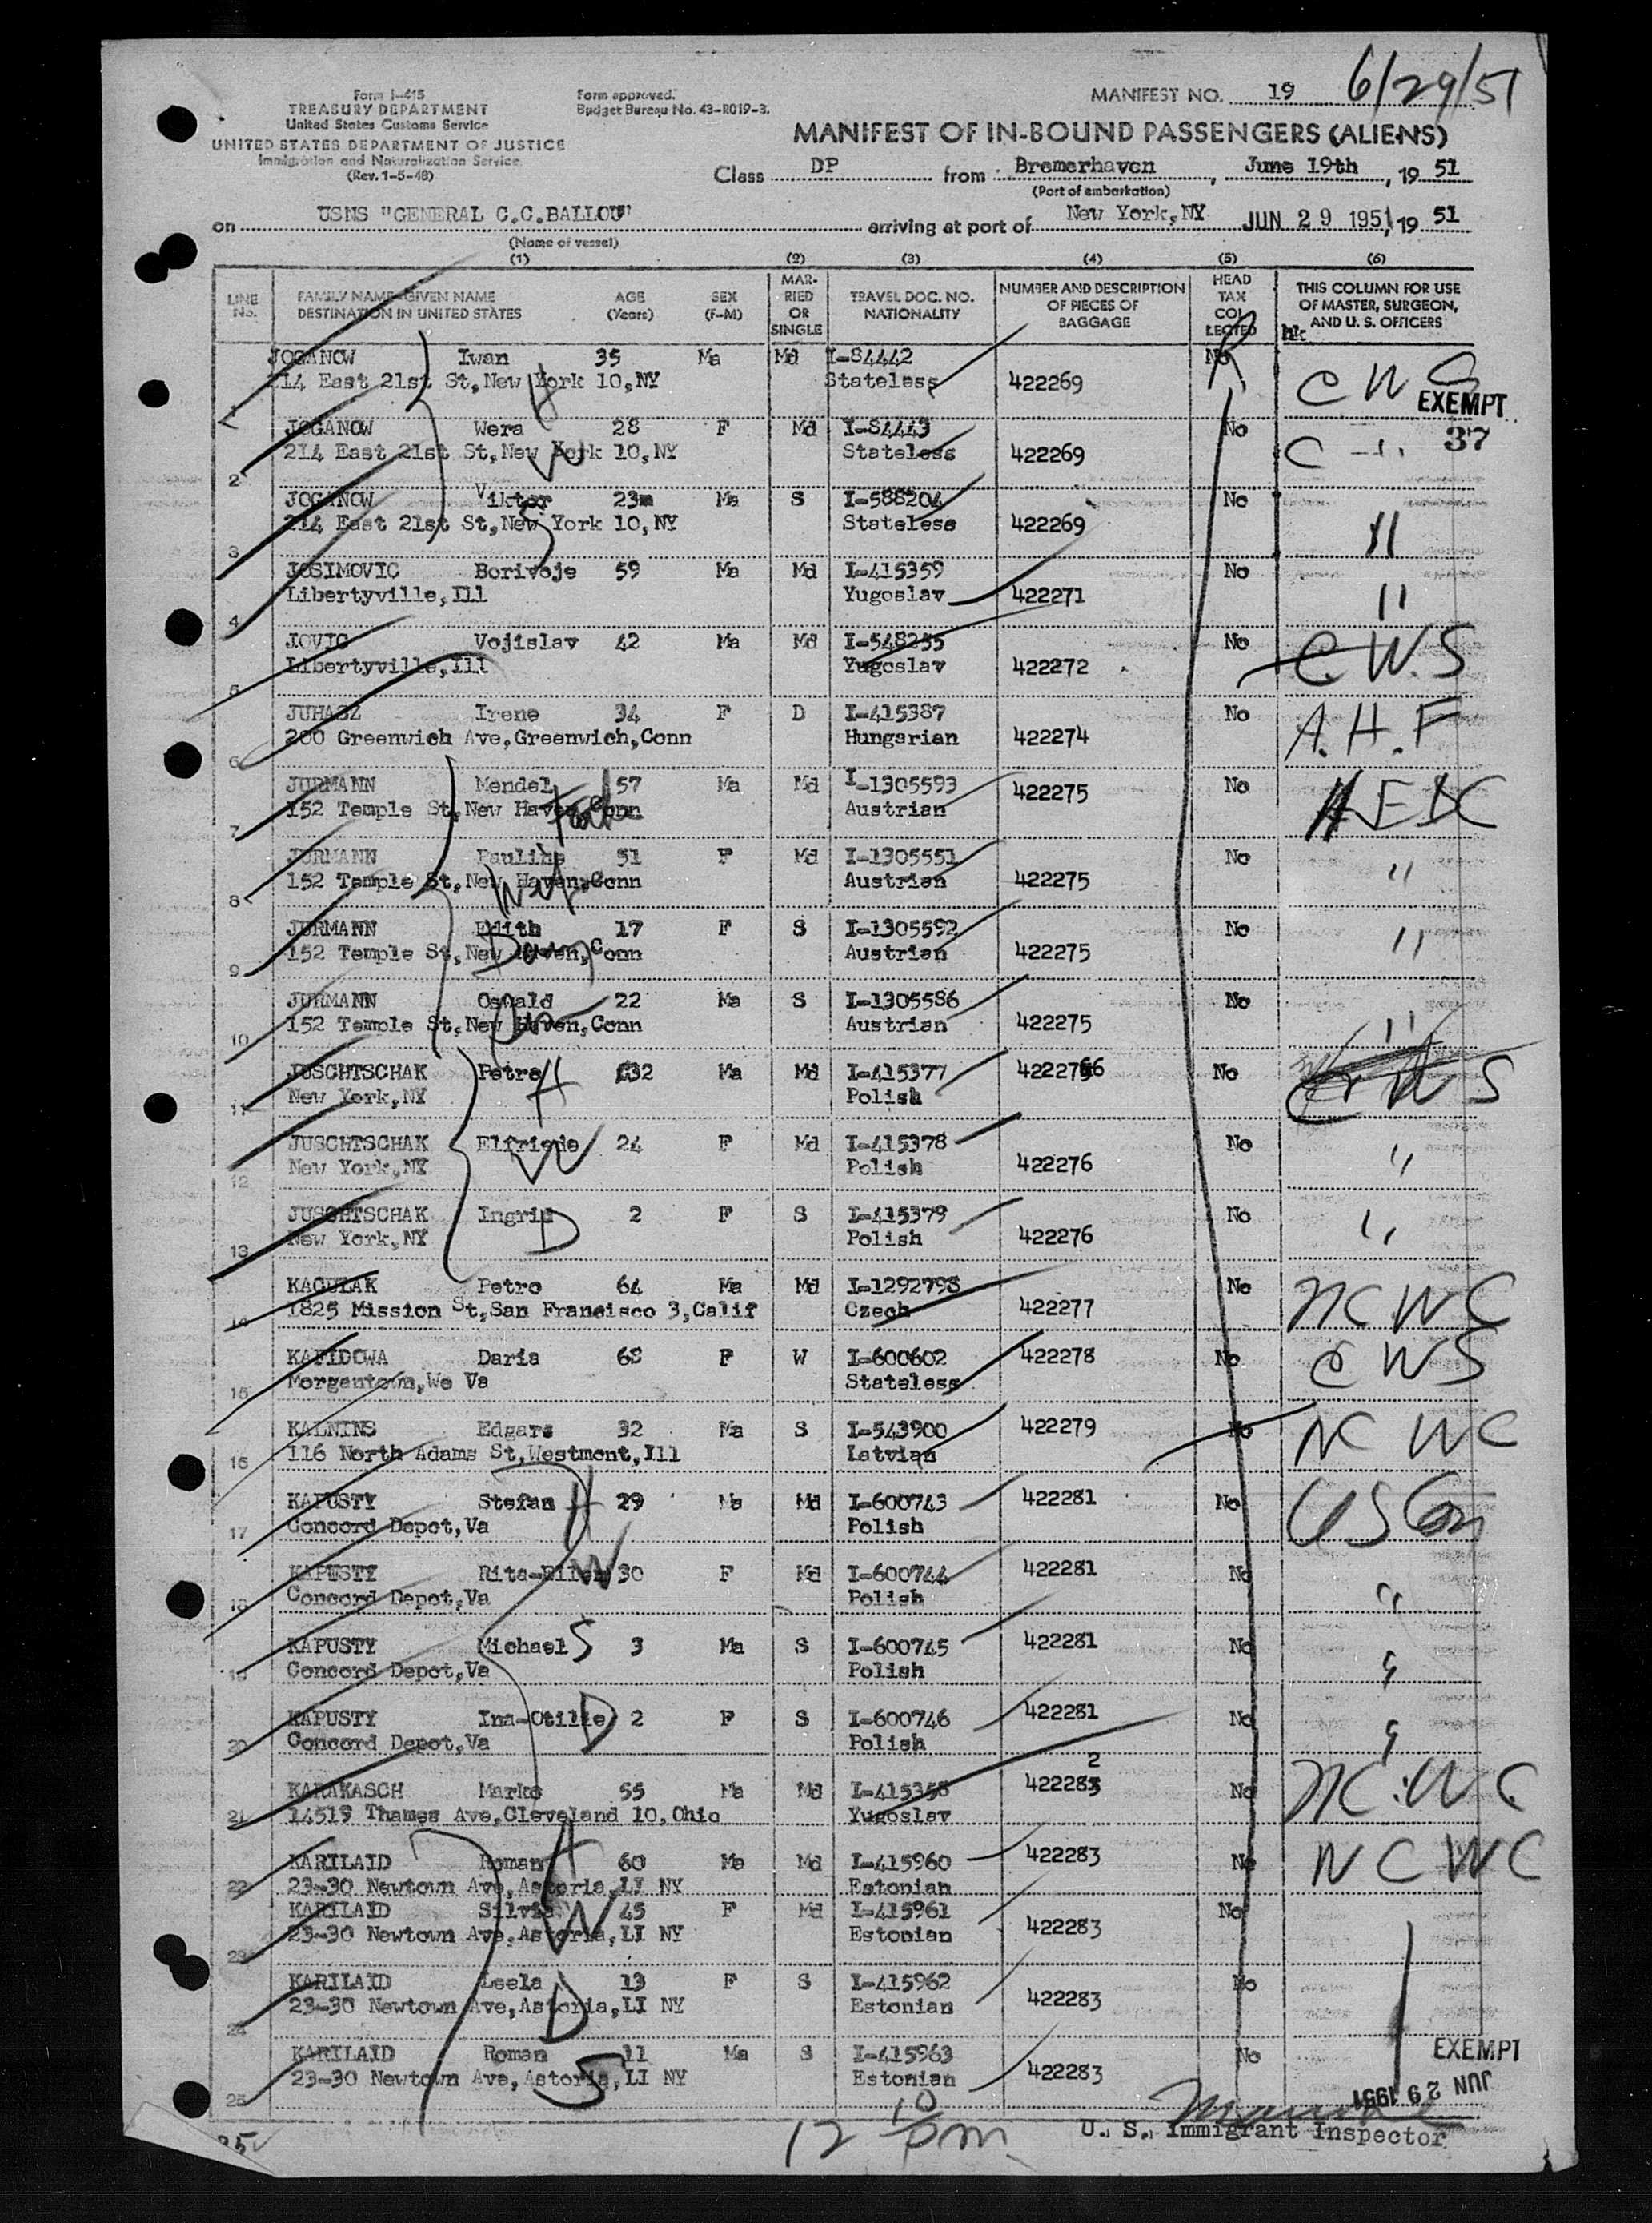 Form I-415
TREASURY DEPARTMENT
United States Customs Service
UNITED STATES DEPARTMENT OF JUSTICE
Immigration and Naturalization Service
(Rev. 1-5-48)
Form approved.
Budget Bureau No. 43-R019-3.
MANIFEST NO. 19 6/29/51
MANIFEST OF IN-BOUND PASSENGERS (ALIENS)
Class DP from Bremerhaven, June 19th, 19 51
(Port of embarkation)
on USNS "GENERAL C.C.BALLOU" arriving at port of New York,NY JUN 29 1951, 19 51
(Name of vessel)
(1) (2) (3) (4) (5) (6)
LINE No. FAMILY NAME-GIVEN NAME DESTINATION IN UNITED STATES AGE (Years) SEX (F-M) MARRIED OR SINGLE TRAVEL DOC. NO. NATIONALITY NUMBER AND DESCRIPTION OF PIECES OF BAGGAGE HEAD TAX COLLECTED THIS COLUMN FOR USE OF MASTER, SURGEON, AND U. S. OFFICERS
JOGANOW Iwan 35 Ma Md I-84442 No
1 214 East 21st St,New York 10,NY H Stateless 422269 C W S
EXEMPT
JOGANOW Wera 28 F Md I-84443 No
2 214 East 21st St,New York 10,NY W Stateless 422269 C -"- 37
JOGANOW Viktor 23m Ma S I-588204 No
3 214 East 21st St,New York 10,NY S Stateless 422269 "
JOSIMOVIC Borivoje 59 Ma Md I-415359 No
4 Libertyville,Ill Yugoslav 422271 "
JOVIC Vojislav 42 Ma Md I-548255 No
5 Libertyville,Ill Yugoslav 422272 C.W.S
JUHASZ Irene 34 F D I-415387 No
6 200 Greenwich Ave,Greenwich,Conn Hungarian 422274 A.H.F
JURMANN Mendel 57 Ma Md I-1305593 422275 No
7 152 Temple St,New Haven,Conn Austrian
JURMANN Pauline 51 F Md I-1305551 No
8 152 Temple St,New Haven,Conn Wife Austrian 422275 "
JURMANN Edith 17 F S I-1305592 No
9 152 Temple St,New Haven,Conn Austrian 422275 "
JURMANN Oswald 22 Ma S I-1305586 No
10 152 Temple St,New Haven,Conn Austrian 422275 "
JUSCHTSCHAK Petro H 32 Ma Md I-415377 422276 No
11 New York,NY Polish C W S
JUSCHTSCHAK Elfriede 24 F Md I-415378 No
12 New York,NY W Polish 422276 "
JUSCHTSCHAK Ingrid 2 F S I-415379 No
13 New York,NY D Polish 422276 "
KACULAK Petro 64 Ma Md I-1292798 No
14 1825 Mission St,San Francisco 3,Calif Czech 422277 N C W C
KAFIDOWA Daria 68 F W I-600602 422278 No
15 Morgantown,We Va Stateless C W S
KALNINS Edgars 32 Ma S I-543900 422279 No
16 116 North Adams St,Westmont,Ill Latvian N C W C
KAPUSTY Stefan H 29 Ma Md I-600743 422281 No
17 Concord Depot,Va Polish
KAPUSTY W 30 F Md I-600744 422281 No
18 Concord Depot,Va Polish "
KAPUSTY Michael S 3 Ma S I-600745 422281 No
19 Concord Depot,Va Polish "
KAPUSTY Ina-Otilie 2 F S I-600746 422281 No
20 Concord Depot,Va D Polish "
KARAKASCH Marko 55 Ma Md I-415358 422282 No
21 14519 Thames Ave,Cleveland 10,Ohio Yugoslav N.C.W.C.
KARILAID Roman H 60 Ma Md I-415960 422283 No
22 23-30 Newtown Ave,Astoria,LI NY Estonian N C W C
KARILAID Silvia 45 F Md I-415961 No
23 23-30 Newtown Ave,Astoria,LI NY W Estonian 422283
KARILAID Leela 13 F S I-415962 No
24 23-30 Newtown Ave,Astoria,LI NY D Estonian 422283
KARILAID Roman 11 Ma S I-415963 No
25 23-30 Newtown Ave,Astoria,LI NY S Estonian 422283
EXEMPT
JUN 29 1951
12 10 pm
U. S. Immigrant Inspector